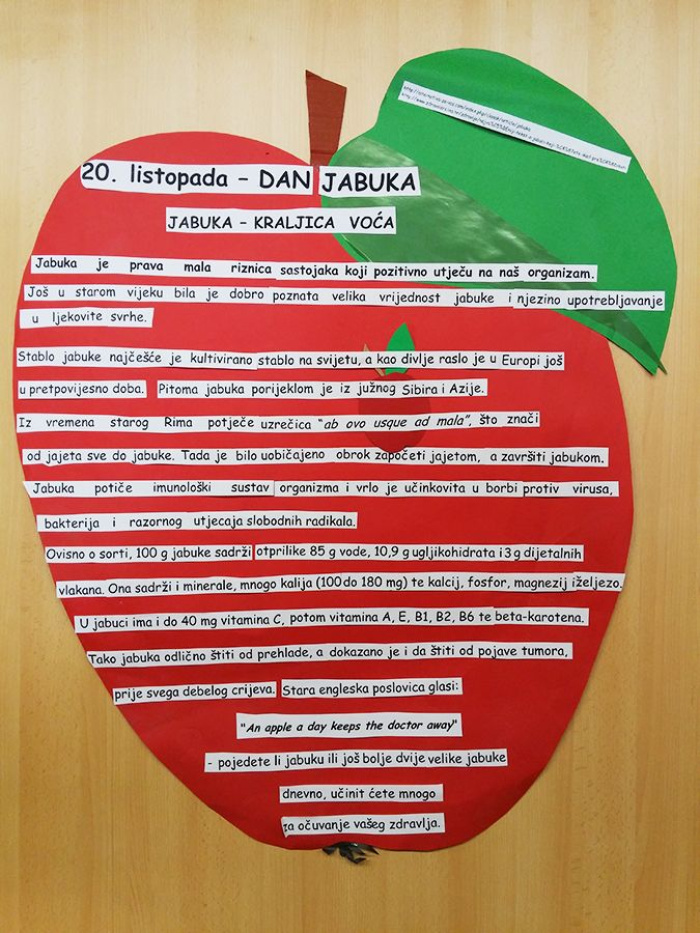 20. listopada – DAN JABUKA
JABUKA – KRALJICA VOĆA
Jabuka je prava mala riznica sastojaka koji pozitivno utječu na naš organizam.
Još u starom vijeku bila je dobro poznata velika vrijednost jabuke i njezino upotrebljavanje
u ljekovite svrhe.
Stablo jabuke najčešće je kultivirano stablo na svijetu, a kao divlje raslo je u Europi još
u pretpovijesno doba. Pitoma jabuka porijeklom je iz južnog Sibira i Azije.
Iz vremena starog Rima potječe uzrečica "ab ovo usque ad mala", što znači
od jajeta sve do jabuke. Tada je bilo uobičajeno obrok započeti jajetom, a završiti jabukom.
Jabuka potiče imunološki sustav organizma i vrlo je učinkovita u borbi protiv virusa,
bakterija i razornog utjecaja slobodnih radikala.
Ovisno o sorti, 100 g jabuke sadrži otprilike 85 g vode, 10,9 g ugljikohidrata i 3 g dijetalnih
vlakana. Ona sadrži i minerale, mnogo kalija (100 do 180 mg) te kalcij, fosfor, magnezij i željezo.
U jabuci ima i do 40 mg vitamina C, potom vitamina A, E, B1, B2, B6 te beta-karotena.
Tako jabuka odlično štiti od prehlade, a dokazano je i da štiti od pojave tumora,
prije svega debelog crijeva. Stara engleska poslovica glasi:
"An apple a day keeps the doctor away"
- pojedete li jabuku ili još bolje dvije velike jabuke
dnevno, učinit ćete mnogo
za očuvanje vašeg zdravlja.